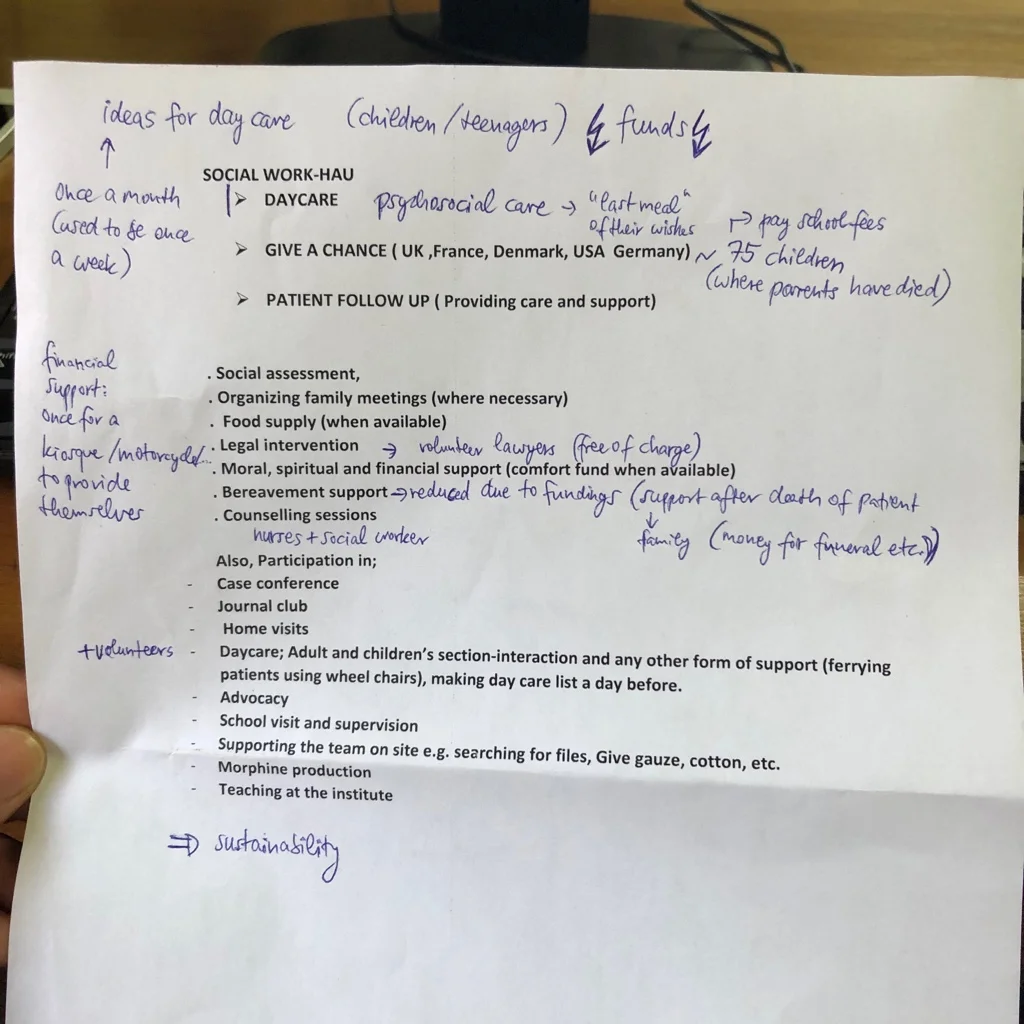 ideas for day care (children/teenagers) funds
SOCIAL WORK-HAU
Once a month
(used to be once
a week)
➢ DAYCARE psychosocial care → "last meal"
of their wishes
→ pay school fees
➢ GIVE A CHANCE ( UK ,France, Denmark, USA Germany) ~ 75 children
(where parents have died)
➢ PATIENT FOLLOW UP ( Providing care and support)
financial
support:
once for a
kiosque/motorcycle/...
to provide
themselves
. Social assessment,
. Organizing family meetings (where necessary)
. Food supply (when available)
. Legal intervention → volunteer lawyers (free of charge)
. Moral, spiritual and financial support (comfort fund when available)
. Bereavement support → reduced due to fundings (support after death of patient
↓
family (money for funeral etc.))
. Counselling sessions
nurses + social worker
Also, Participation in;
- Case conference
- Journal club
- Home visits
+volunteers - Daycare; Adult and children's section-interaction and any other form of support (ferrying
patients using wheel chairs), making day care list a day before.
- Advocacy
- School visit and supervision
- Supporting the team on site e.g. searching for files, Give gauze, cotton, etc.
- Morphine production
- Teaching at the institute
⇒ sustainability